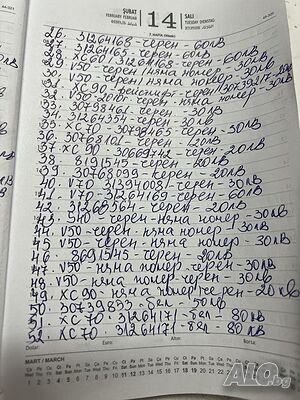 ŞUBAT
FEBRUARY FEBRUAR
14
SALI
TUESDAY DIENSTAG
26. 31264168 - черен - 60лв
27. 31264167 - черен - 60лв
28. XC60 / 31264168 - черен - 60лв
29. V50 - черен - няма номер - 30лв
30. V50 - черен / няма номер - 30лв
31. XC90 - рейсшифт - черен / 30739217 - 20лв
32. V50 - 2010г - черен няма номер - 30лв
33. 30798461 - черен - 30лв
34. 31264354 - черен - 30лв
35. XC70 - 30798465 - черен - 30лв
36. 30798101 - черен - 120лв
37. XC90 - 30669742 - черен - 20лв
38. 8191545 - черен - 60лв
39. 30768099 - черен - 20лв
40. V70 - 31394008 - черен - 30лв
41. V70 - 31264169 - черен - 60лв
42. 31268561 - черен - 20лв
43. S40 - черен - няма номер - 30лв
44. V50 - черен. няма номер - 30лв
45. V50 - черен - няма номер - 30лв
46. 8691545 - черен - 20лв
47. V50 - няма номер - черен - 30лв
48. V50 - няма номер - черен - 30лв
49. XC90 - няма номер черен - 20лв
50. 30739859 - бел - 50лв
51. XC70 - 31264171 - бел - 80лв
52. XC70 - 31264171 - бел - 80лв
MART / MARCH
ALO.bg